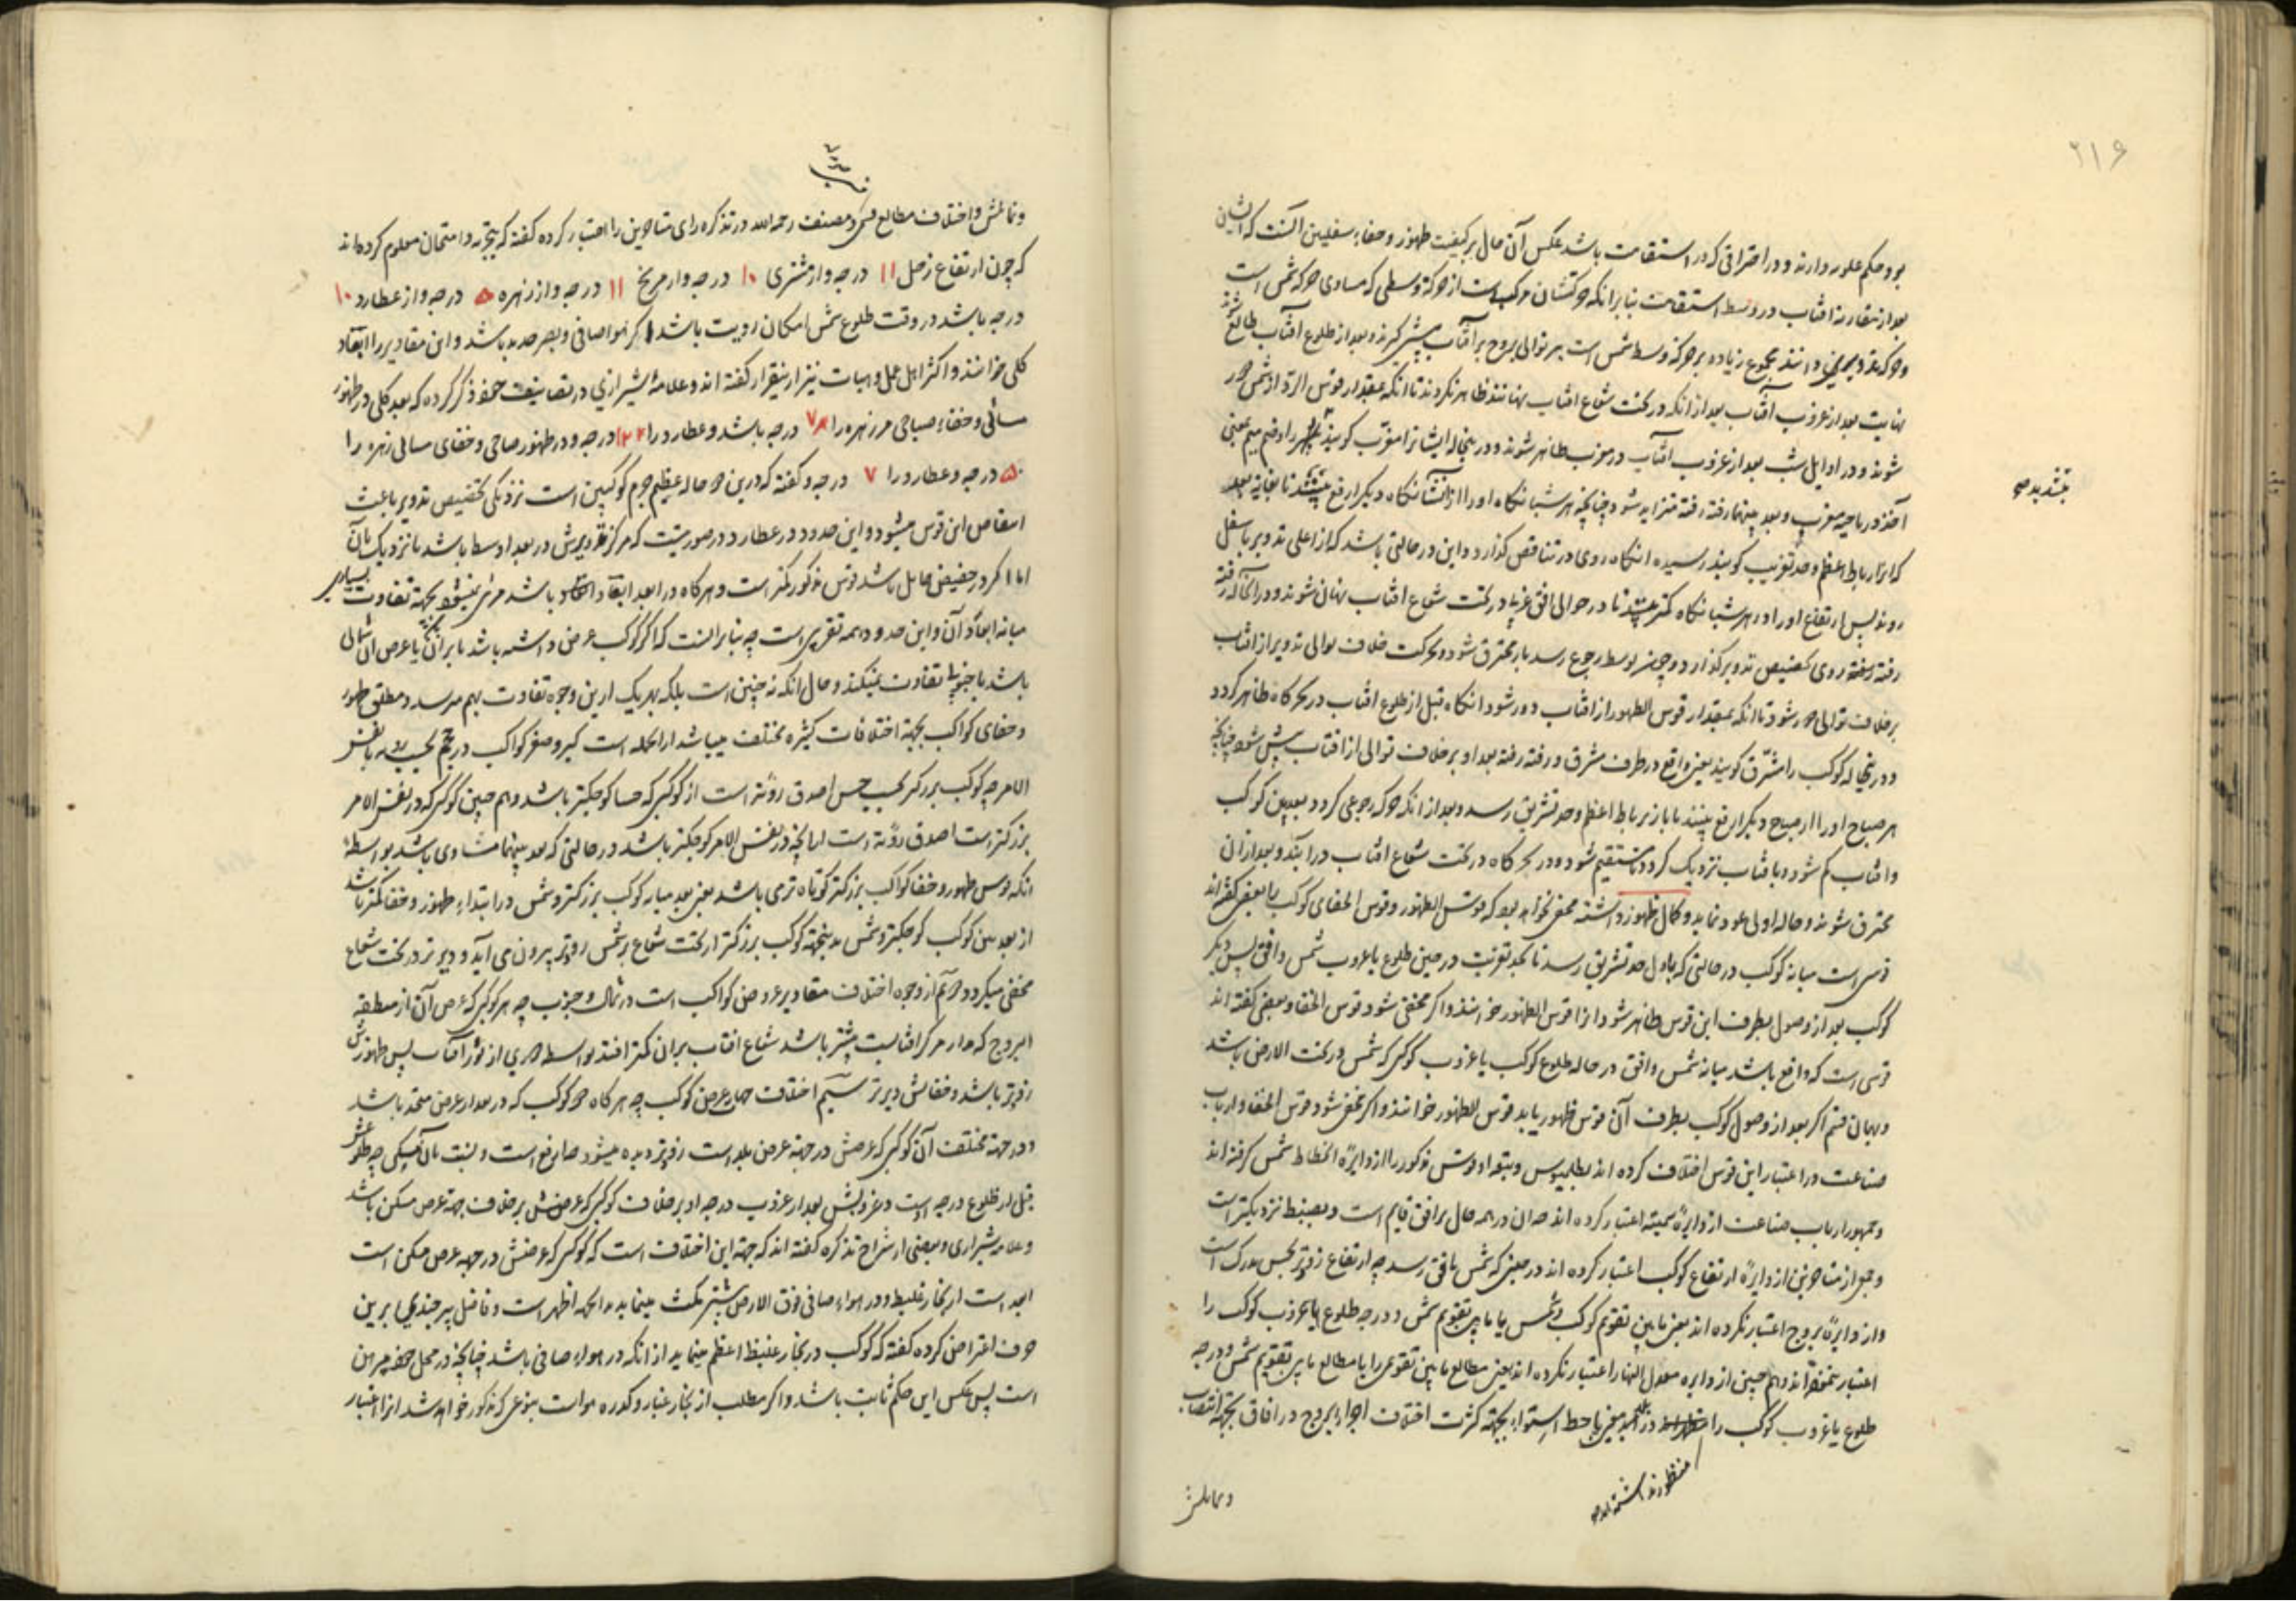 ۲۱۶
بود و حکم علویه دارند و در احتراقی که در استقامت باشد عکس آن حال بر کیفیت ظهور و خفاء سفلیین آنست که ایشان
بعد از مقارنه آفتاب در وسط استقامت بنابر آنکه حرکتشان مرکب است از حرکة وسطی که مساوی حرکة شمس است
و حرکة تدویر مجموع زیاده بر حرکة وسط شمس است بر توالی بروج بر آفتاب پیشی گیرند و بعد از طلوع آفتاب طالع شوند
نهایت بعد از غروب آفتاب بعد از آنکه در تحت شعاع آفتاب نهانند ظاهر نگردند تا آنکه بمقدار قوس الرؤیة از شمس دور
شوند و در اوایل شب بعد از غروب آفتاب در مغرب ظاهر شوند و در ینحاله ایشانرا مغرّب گویند بکسر راء و ضم میم یعنی
بینند بدصح
آخذ در ناحیه مغرب و بعد بینهما رفته رفته متزاید شود چنانچه هر شبانگاه او را از شبانگاه دیگر ارفع بینند تا بغایة بعد
که آنرا رباط اعظم و حد تغریب گویند رسیده آنگاه روی در تناقص گذارد و این در حالتی باشد که از اعلی تدویر باسفل
روند پس ارتفاع او را در هر شبانگاه کمتر بینند تا در حوالی افق غربی در تحت شعاع آفتاب نهان شوند و در آنحاله رفته
رفته روی بحضیض تدویر گذارد و چون بوسط رجوع رسد باز محترق شود و بحرکت خلاف توالی تدویر از آفتاب
بر خلاف توالی دور شود تا آنکه بمقدار قوس الظهور از آفتاب دور شود آنگاه قبل از طلوع آفتاب در سحرگاه ظاهر گردد
و در ینحاله کوکب را مشرّق گویند یعنی واقع در طرف مشرق و رفته رفته بعد او بر خلاف توالی از آفتاب بیش شود چنانچه
هر صباح او را از صباح دیگر ارفع بینند تا باز برباط اعظم و حد تشریق رسد و بعد از آنکه حرکة رجوعی گردد بعد بین کوکب
و آفتاب کم شود و بآفتاب نزدیک گردد تا مستقیم شود و در سحرگاه در تحت شعاع آفتاب در آید و بعد از آن
محترق شوند و حاله اولی عود نماید و کمال ظهور داشته مخفی نخواهد بود که قوس الظهور و قوس الخفای کوکب را بعضی گفته‌اند
قوسی است میانه کوکب در حالتی که باول حد تشریق رسد تا بحد تغریب در حین طلوع یا غروب شمس و افق پس دیگر
کوکب بعد از وصول بطرف این قوس ظاهر شود آنرا قوس الظهور خوانند و اگر مخفی شود قوس الخفا و بعضی گفته‌اند
قوسی است که واقع باشد میانه شمس و افق در حاله طلوع کوکب یا غروب کوکبی که شمس در تحت الارض باشد
و بهمان قسم اگر بعد از وصول کوکب بطرف آن قوس ظهور یابد قوس الظهور خوانند و اگر مخفی شود قوس الخفا و ارباب
صناعت در اعتبار این قوس اختلاف کرده‌اند بطلمیوس و بتعه او قوس مذکور را از دایرهٔ انحطاط شمس گرفته‌اند
و جمهور ارباب صناعت از دایرهٔ سمتیه اعتبار کرده‌اند چه آن در همه حال بر افق قایم است و بضبط نزدیکتر است
و جمع از متاخرین از دایرهٔ ارتفاع کوکب اعتبار کرده‌اند در حینی که شمس بافق رسد چه ارتفاع زودتر بحس مدرک است
و از دایرهٔ بروج اعتبار نکرده‌اند یعنی ما بین تقویم کوکب و شمس یا ما بین تقویم شمس و درجه طلوع یا غروب کوکب را
اعتبار ننموده‌اند و هم چنین از دایره معدل النهار اعتبار نکرده‌اند یعنی مطالع ما بین تقویمین را یا مطالع ما بین تقویم شمس و درجه
طلوع یا غروب کوکب را در بلد معین یا خط استواء بجهة کثرت اختلاف اجزاء بروج در آفاق بجهة انتصاب
منظور نداشته‌اند صح
و تمایلش
و تمایلش و اختلاف مطالع مصنف رحمه الله در تذکره رای متاخرین را اختیار کرده گفته که بتجربه و امتحان معلوم کرده‌اند
که چون ارتفاع زحل ۱۱ درجه و از مشتری ۱۰ درجه و از مریخ ۱۱ درجه و از زهره ۵ درجه و از عطارد ۱۰
درجه باشد در وقت طلوع شمس امکان رویت باشد اگر هوا صافی و بصر حدید باشد و این مقادیر را ابعاد
کلی خوانند و اکثر اهل عمل و هیات نیز از ینقرار گفته‌اند و علامهٔ شیرازی در تصانیف خود ذکر کرده که بعد کلی در ظهور
مسائی و خفاء صباحی مر زهره را ۷ درجه باشد و عطارد را ۱۲ درجه و در ظهور صباحی و خفای مسائی زهره را
۵ درجه و عطارد را ۷ درجه و گفته که درین دو حاله عظیم جرم کوکبین است نزدیکی بحضیض تدویر باعث
انتقاص این قوس میشود و این حدود در عطارد در صورتیست که مرکز تدویرش در بعد اوسط باشد یا نزدیک بآن
اما اگر در حضیض حامل باشد قوس مذکور کمتر است و هر گاه در ابعد ابعاد باشد مرئی نمیشود بجهة تفاوت بسیاری
میانه ابعاد آن و این حدود همه تقریبی است چه بنابر آنست که اگر کوکب عرض داشته باشد یا بر آن یا عرض آن شمالی
باشد یا جنوبی تفاوت نمیکند و حال آنکه نه چنین است بلکه بهر یک ازین وجوه تفاوت بهم میرسد و مطلق ظهور
و خفای کواکب بجهة اختلافات کثیره مختلف میباشد از آنجمله است کبر و صغر کواکب در حجم بحسب رؤیه یا نفس
الامر چه کوکب بزرگتر بحسب حس اصدق رؤیة است از کوکبی که حسا کوچکتر باشد و هم چنین کوکبی که در نفس الامر
بزرگتر است اصدق رؤیة است از آنچه در نفس الامر کوچکتر باشد در حالتی که بعد بینهما متساوی باشد بواسطهٔ
آنکه قوس ظهور و خفا کواکب بزرگتر کوتاه‌تر می باشد یعنی بعد میانه کوکب بزرگتر و شمس در ابتداء ظهور و خفا کمتر باشد
از بعد بین کوکب کوچکتر و شمس بدینجهة کوکب بزرگتر از تحت شعاع شمس زودتر بیرون می آید و دیرتر در تحت شعاع
مخفی میگردد دویم از وجوه اختلاف مقادیر عروض کواکب است در شمال و جنوب چه هر کوکبی که عرض آن از منطقة
البروج که مدار مرکز آفتابست بیشتر باشد شعاع آفتاب بر آن کمتر افتد بواسطه دوری از نور آفتاب پس ظهورش
زودتر باشد و خفائش دیرتر سیّم اختلاف جهات عرض کوکب چه هر گاه دو کوکب که در مقدار عرض متحد باشد
و در جهة مختلف آن کوکبی که عرضش در جهة عرض بلد است زودتر دیده میشود چه ارفع است و نسبت بآن مسکن چه طلوعش
قبل از طلوع درجه اوست و غروبش بعد از غروب درجه او بر خلاف کوکبی که عرضش بر خلاف جهة عرض مسکن باشد
و علامه شیرازی و بعضی از شراح تذکره گفته‌اند که جهة این اختلاف است که کوکبی که عرضش در جهة عرض مسکن است
ابعد است از بخار غلیظ و در هواء صافی فوق الارض بیشتر مکث مینماید لهذا اظهر است و فاضل بیرجندی برین
حرف اعتراض کرده گفته که کوکب در بخار غلیظ اعظم مینماید از آنکه در هواء صافی باشد چنانچه در محل خود مبرهن
است پس عکس این حکم ثابت باشد و اگر مطلب از بخار غبار و کدوره هواست بنوعی که مذکور خواهد شد آنرا اعتبار